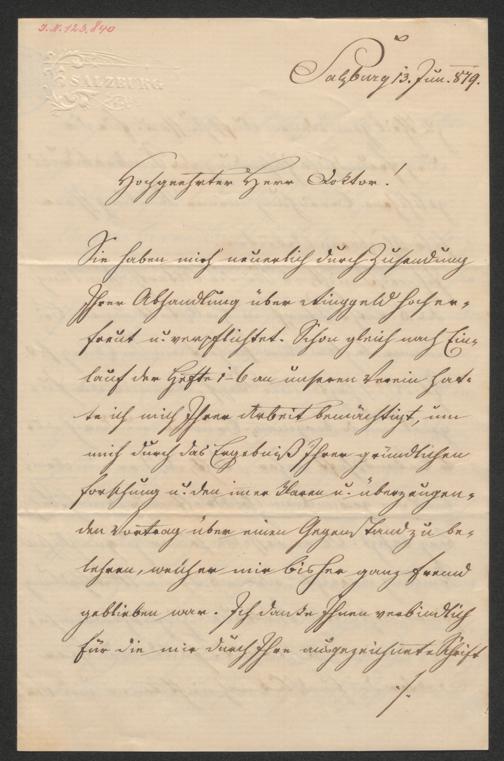 I.N. 123.840
SALZBURG
Salzburg 13. Jun. 879.
Hochgeehrter Herr Doktor!
Sie haben mich neuerlich durch Zusendung
Ihrer Abhandlung über Ringgeld hoch er-
freut u. verpflichtet. Schon gleich nach Ein-
lauf der Hefte 1–6 an unseren Verein hat-
te ich mich Ihrer Arbeit bemächtigt, um
mich durch das Ergebniß Ihrer gründlichen
Forschung u. den immer klaren u. überzeugen-
den Vortrag über einen Gegenstand zu be-
lehren, welcher mir bisher ganz fremd
geblieben war. Ich danke Ihnen verbindlich
für die mir durch Ihre ausgezeichnete Schrift
./.